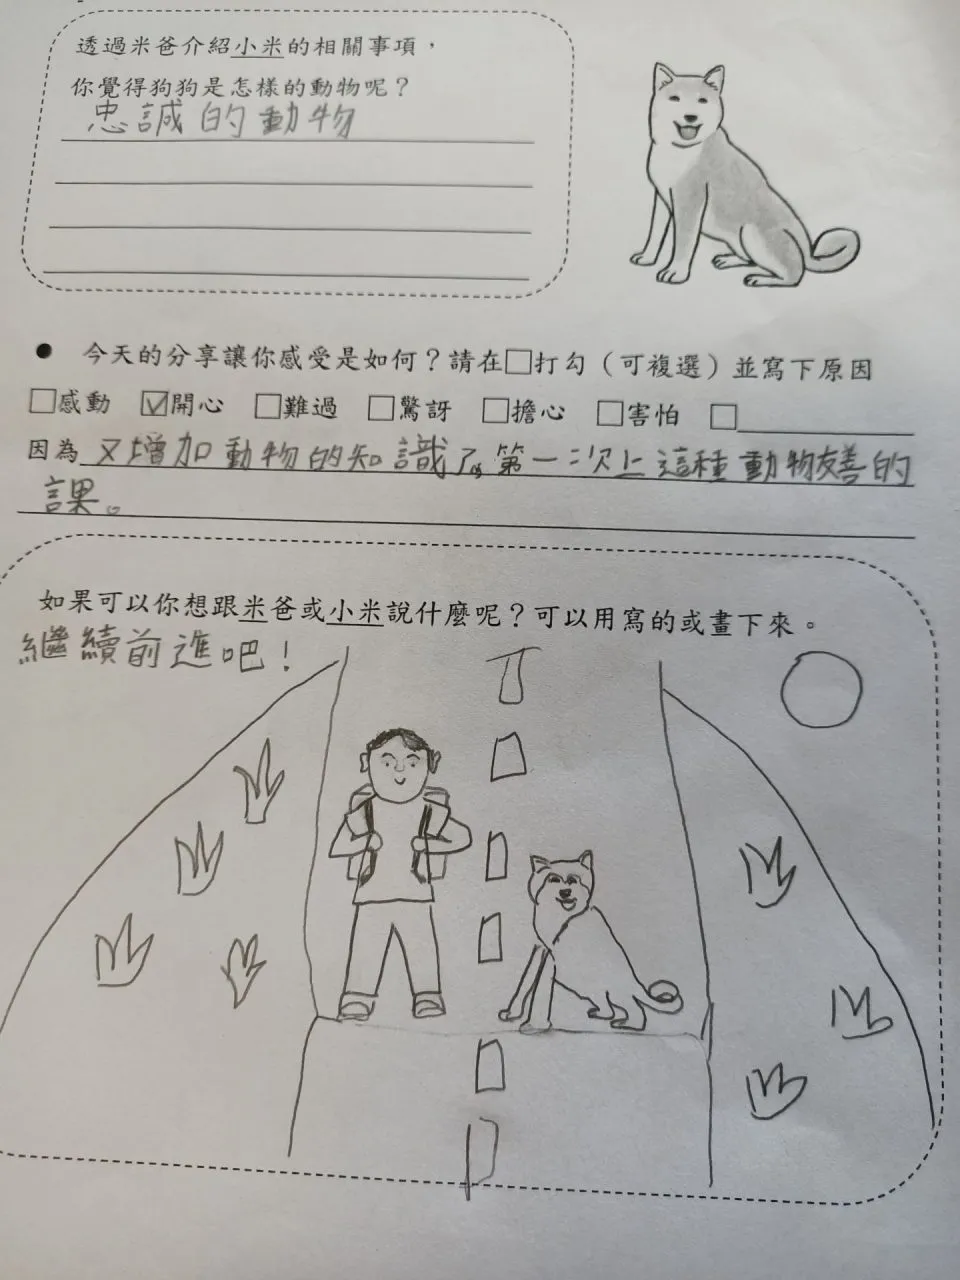 透過米爸介紹小米的相關事項，
你覺得狗狗是怎樣的動物呢？
忠誠的動物
● 今天的分享讓你感受是如何？請在□打勾（可複選）並寫下原因
□感動 ☑開心 □難過 □驚訝 □擔心 □害怕 □
因為又增加動物的知識了。第一次上這種動物友善的
課。
如果可以你想跟米爸或小米說什麼呢？可以用寫的或畫下來。
繼續前進吧！